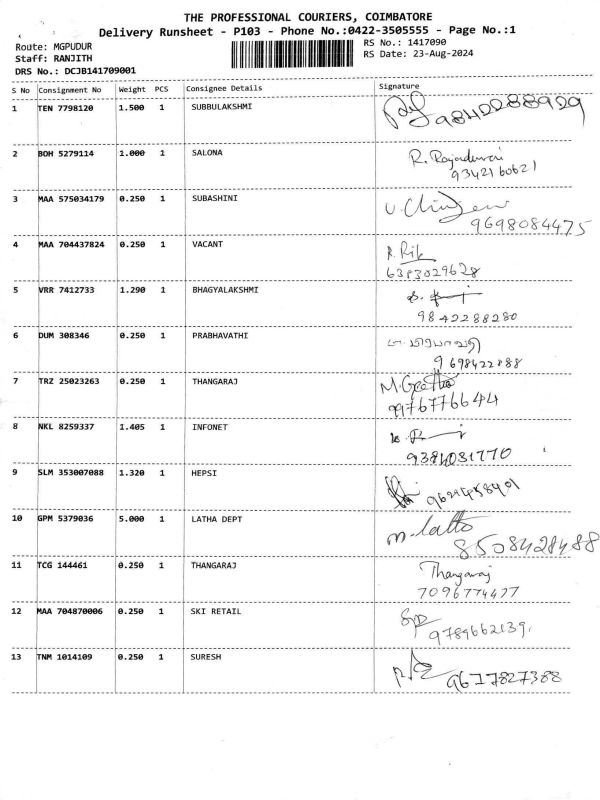 THE PROFESSIONAL COURIERS, COIMBATORE
Delivery Runsheet - P103 - Phone No.:0422-3505555 - Page No.:1
Route: MGPUDUR
RS No.: 1417090
Staff: RANJITH
RS Date: 23-Aug-2024
DRS No.: DCJB141709001
S No Consignment No Weight PCS Consignee Details Signature
1 TEN 7798120 1.500 1 SUBBULAKSHMI
9842288929
2 BOH 5279114 1.000 1 SALONA R.
9342160621
3 MAA 575034179 0.250 1 SUBASHINI
9698084475
4 MAA 704437824 0.250 1 VACANT
6383029628
5 VRR 7412733 1.290 1 BHAGYALAKSHMI
9842288280
6 DUM 308346 0.250 1 PRABHAVATHI
9698422888
7 TRZ 25023263 0.250 1 THANGARAJ M. Geetha
9976776644
8 NKL 8259337 1.405 1 INFONET
9384031770
9 SLM 353007088 1.320 1 HEPSI
10 GPM 5379036 5.000 1 LATHA DEPT M. Latha
8508428488
11 TCG 144461 0.250 1 THANGARAJ Thangaraj
7096774477
12 MAA 704870006 0.250 1 SKI RETAIL
9789662139.
13 TNM 1014109 0.250 1 SURESH
9677827388